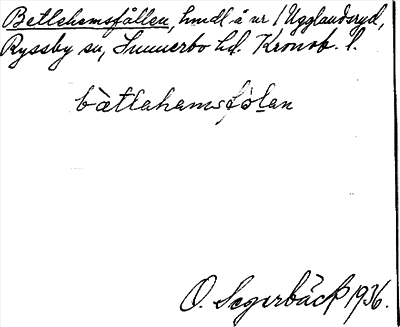 Betlehemsfållen, hmdl å nr 1 Ugglandsryd,
Ryssby sn, Sunnerbo hd. Kronob. l.
bàtlahamsfólan
O. Segerbäck 1936.